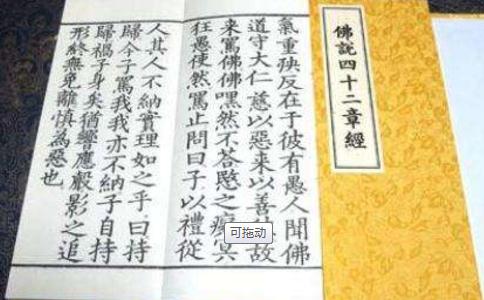 佛說四十二章經
氣重殃反在于彼有愚人聞佛
道守大仁慈以惡來以善故
來罵佛佛嘿然不答愍之癡冥
狂愚使然罵止問曰子以禮從
人其人不納實理如之乎曰持
歸今子罵我我亦不納子自持
歸禍子身矣猶響應聲影之追
形終無免離慎為惡也
可拖动